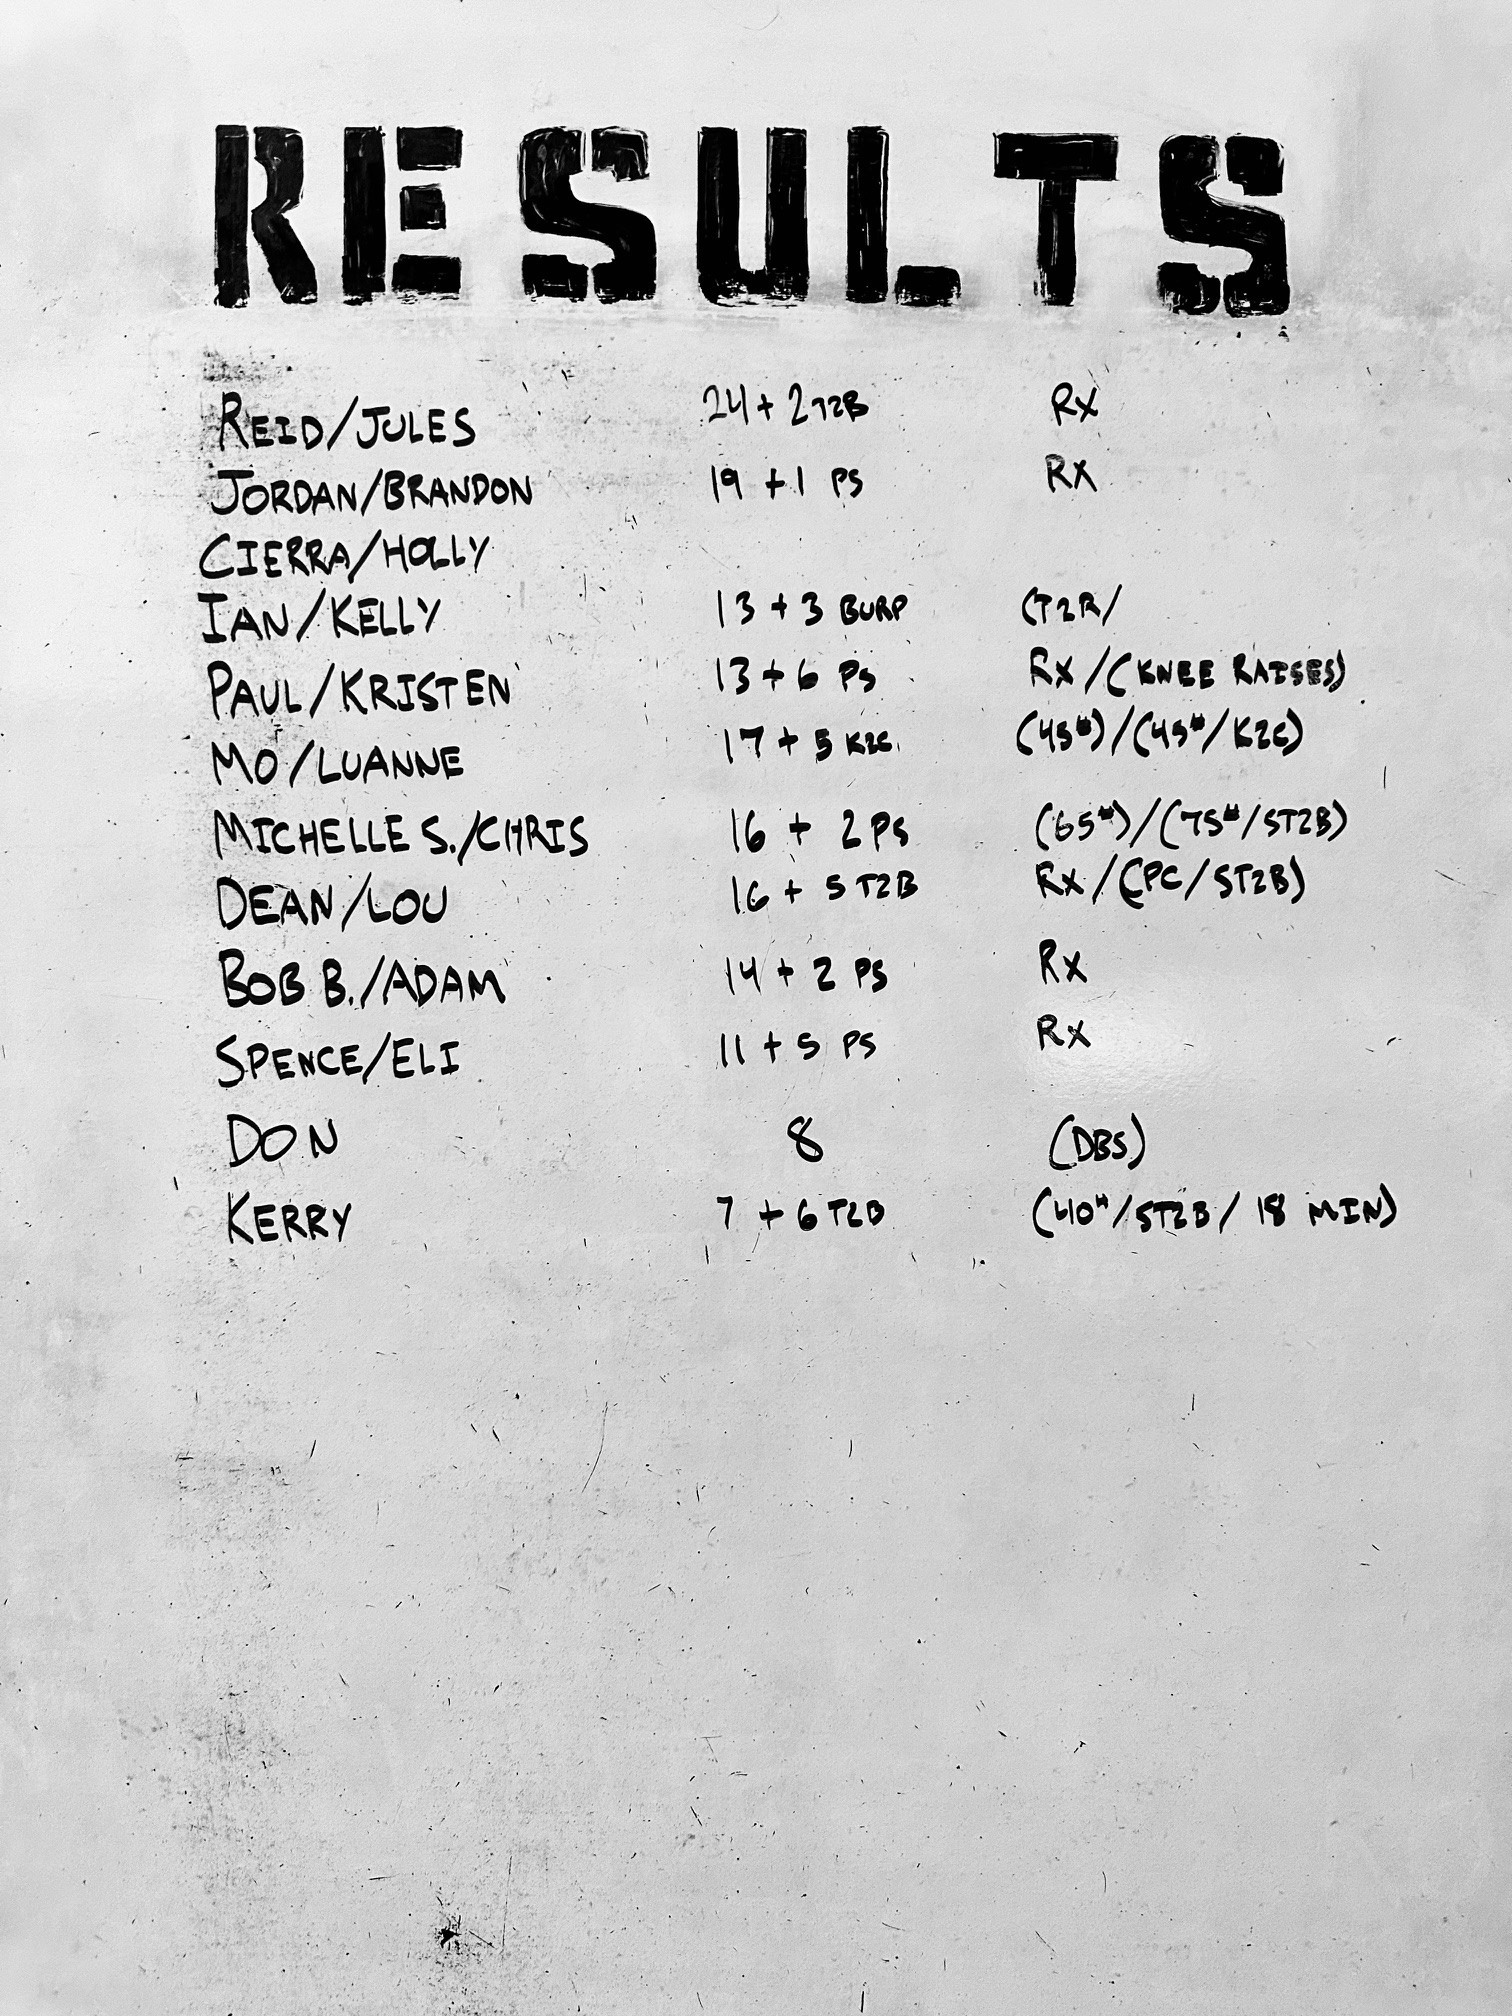 RESULTS
REID/JULES 24 + 2 T2B RX
JORDAN/BRANDON 19 + 1 PS RX
CIERRA/HOLLY
IAN/KELLY 13 + 3 BURP (T2R/
PAUL/KRISTEN 13 + 6 PS RX/(KNEE RAISES)
MO/LUANNE 17 + 5 K2C (45#)/(45#/K2C)
MICHELLE S./CHRIS 16 + 2 PS (65#)/(75#/ST2B)
DEAN/LOU 16 + 5 T2B RX/(PC/ST2B)
BOB B./ADAM 14 + 2 PS RX
SPENCE/ELI 11 + 5 PS RX
DON 8 (DBS)
KERRY 7 + 6 T2B (40#/ST2B/18 MIN)